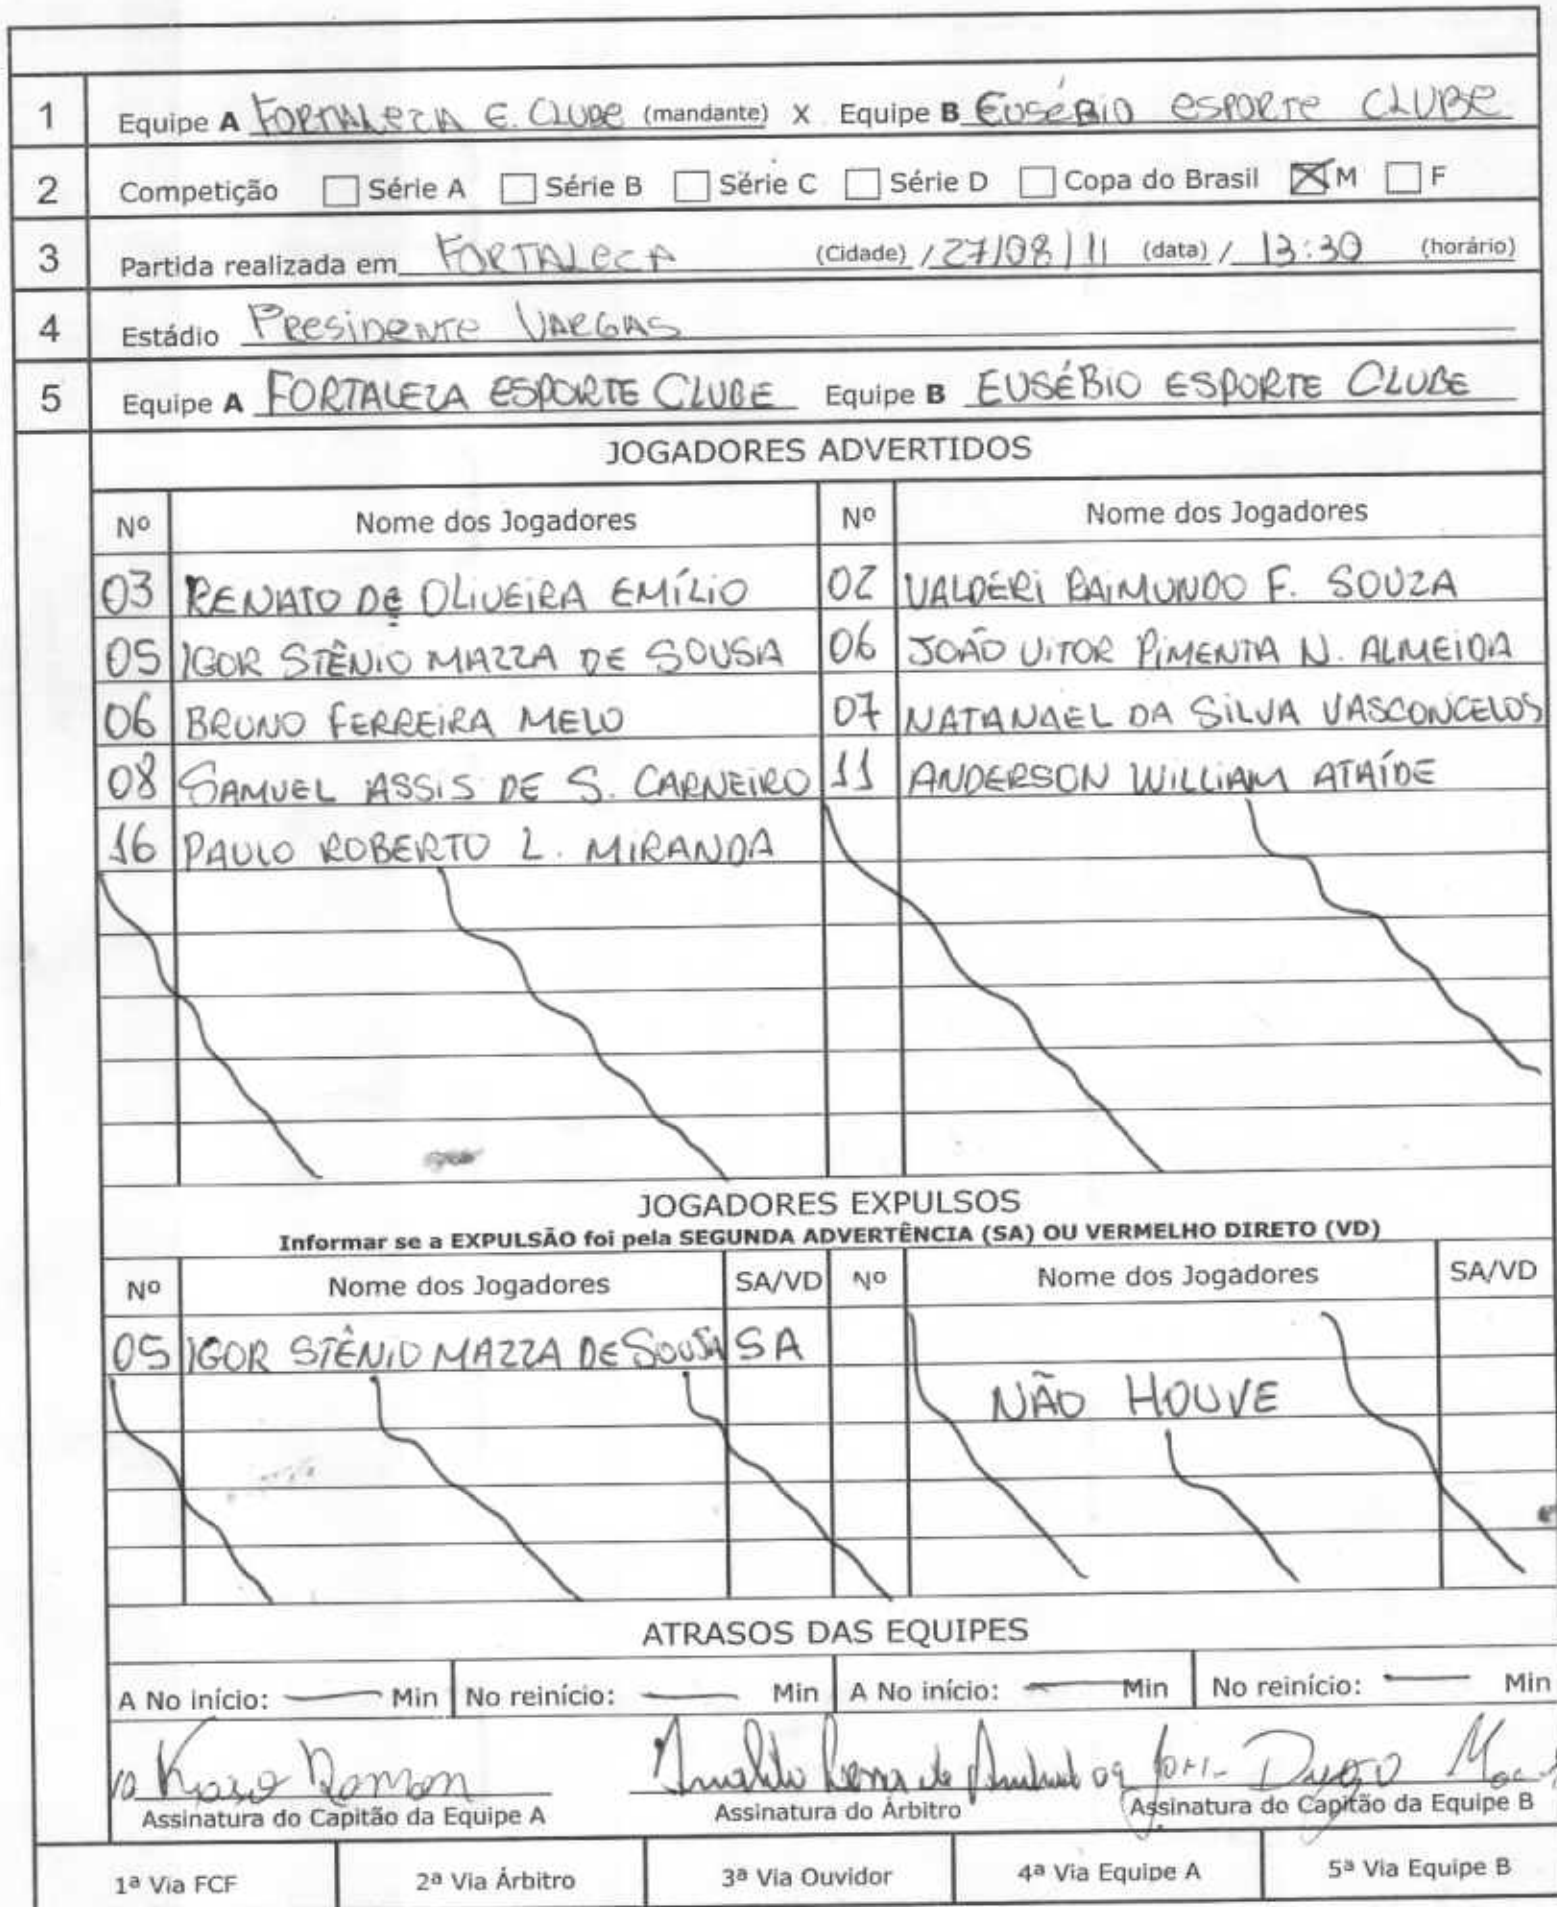 1 Equipe A FORTALEZA E. CLUBE (mandante) X Equipe B EUSÉBIO ESPORTE CLUBE
2 Competição Série A Série B Série C Série D Copa do Brasil M F
3 Partida realizada em FORTALEZA (Cidade) / 27/08/11 (data) / 13:30 (horário)
4 Estádio PRESIDENTE VARGAS
5 Equipe A FORTALEZA ESPORTE CLUBE Equipe B EUSÉBIO ESPORTE CLUBE
JOGADORES ADVERTIDOS
Nº Nome dos Jogadores Nº Nome dos Jogadores
03 RENATO DE OLIVEIRA EMÍLIO 02 VALDERI RAIMUNDO F. SOUZA
05 IGOR STÊNIO MAZZA DE SOUSA 06 JOÃO VITOR PIMENTA N. ALMEIDA
06 BRUNO FERREIRA MELO 07 NATANAEL DA SILVA VASCONCELOS
08 SAMUEL ASSIS DE S. CARNEIRO 11 ANDERSON WILLIAM ATAÍDE
16 PAULO ROBERTO L. MIRANDA
JOGADORES EXPULSOS
Informar se a EXPULSÃO foi pela SEGUNDA ADVERTÊNCIA (SA) OU VERMELHO DIRETO (VD)
Nº Nome dos Jogadores SA/VD Nº Nome dos Jogadores SA/VD
05 IGOR STÊNIO MAZZA DE SOUSA SA
NÃO HOUVE
ATRASOS DAS EQUIPES
A No início: Min No reinício: Min A No início: Min No reinício: Min
Assinatura do Capitão da Equipe A Assinatura do Árbitro Assinatura do Capitão da Equipe B
1ª Via FCF 2ª Via Árbitro 3ª Via Ouvidor 4ª Via Equipe A 5ª Via Equipe B